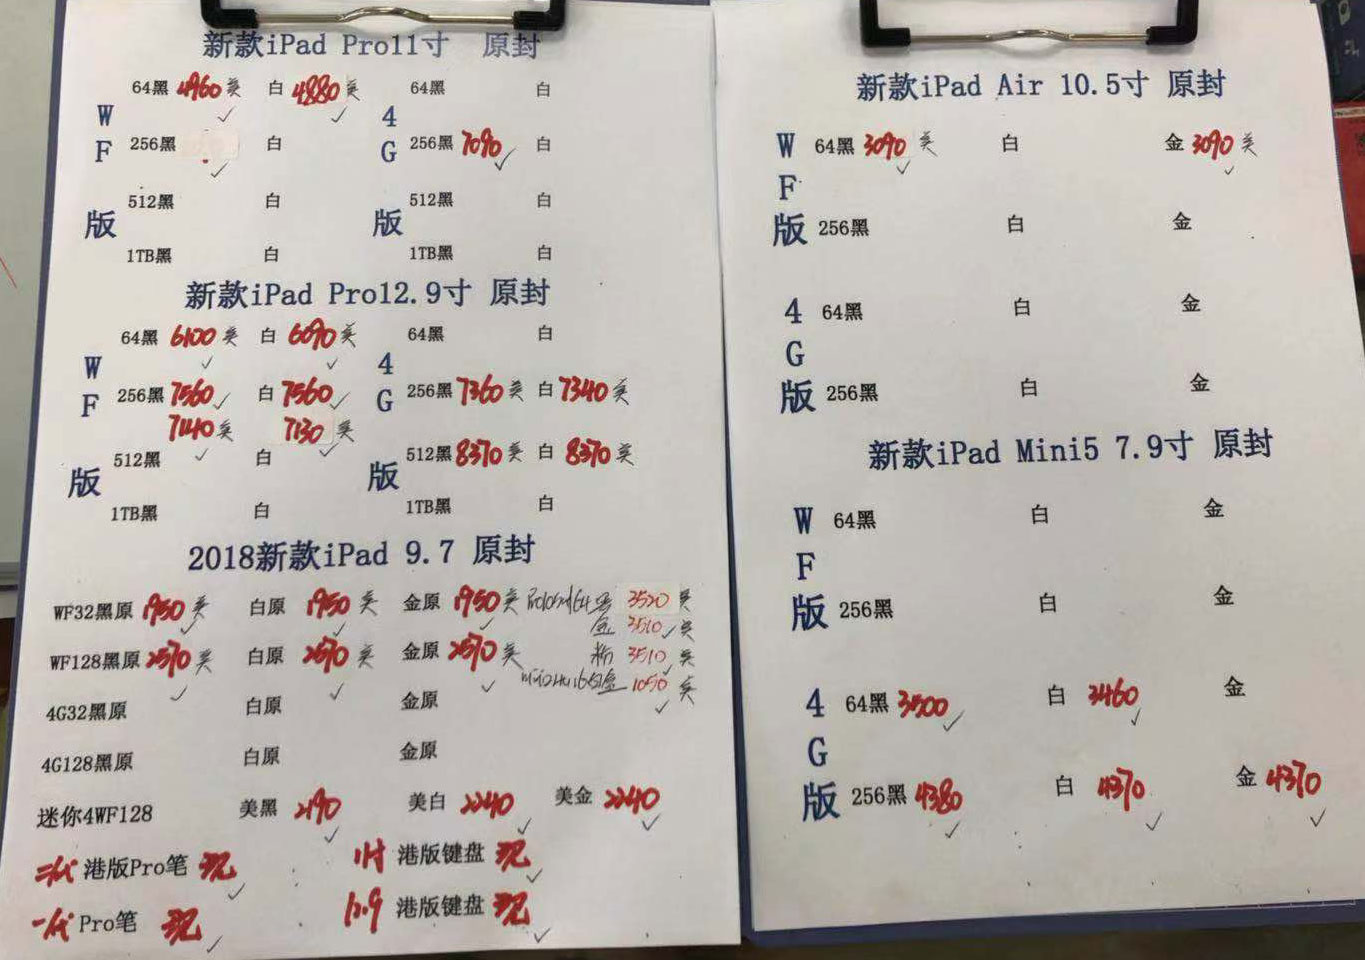 新款iPad Pro11寸 原封
64黑 4960 美 白 4880 美 64黑 白
WF版 4G版
256黑 白 256黑 7090 白
512黑 白 512黑 白
1TB黑 白 1TB黑 白
新款iPad Pro12.9寸 原封
64黑 6100 美 白 6090 美 64黑 白
WF版 4G版
256黑 7560 白 7560 256黑 7360 美 白 7340 美
7140 美 7130 美
512黑 白 512黑 8370 美 白 8370 美
1TB黑 白 1TB黑 白
2018新款iPad 9.7 原封
WF32黑原 1950 美 白原 1950 美 金原 1950 美 3520 美
金 3510 美
WF128黑原 2570 美 白原 2570 美 金原 2570 美 粉 3510 美
金 1050 美
4G32黑原 白原 金原
4G128黑原 白原 金原
迷你4WF128 美黑 2190 美白 2240 美金 2240
二代 港版Pro笔 现 11寸 港版键盘 现
一代 Pro笔 现 12.9 港版键盘 现
新款iPad Air 10.5寸 原封
WF版
64黑 3090 美 白 金 3090 美
256黑 白 金
4G版
64黑 白 金
256黑 白 金
新款iPad Mini5 7.9寸 原封
WF版
64黑 白 金
256黑 白 金
4G版
64黑 3500 白 3460 金
256黑 4380 白 4370 金 4370